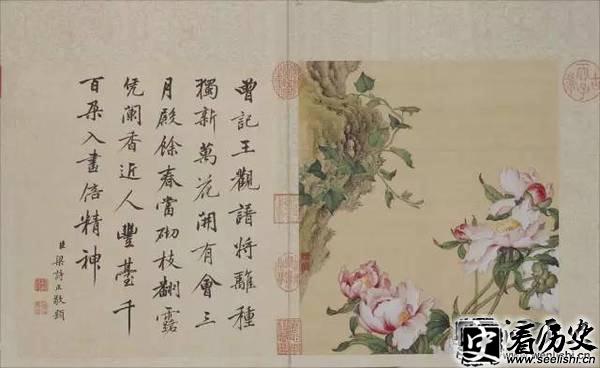 曾記王觀譜將離種
獨新萬花開有會三
月殿餘春當砌枝翻露
凭闌香近人豐臺千
百朵入畫倍精神
臣梁詩正敬題
史 看历史
www.seelishi.cn